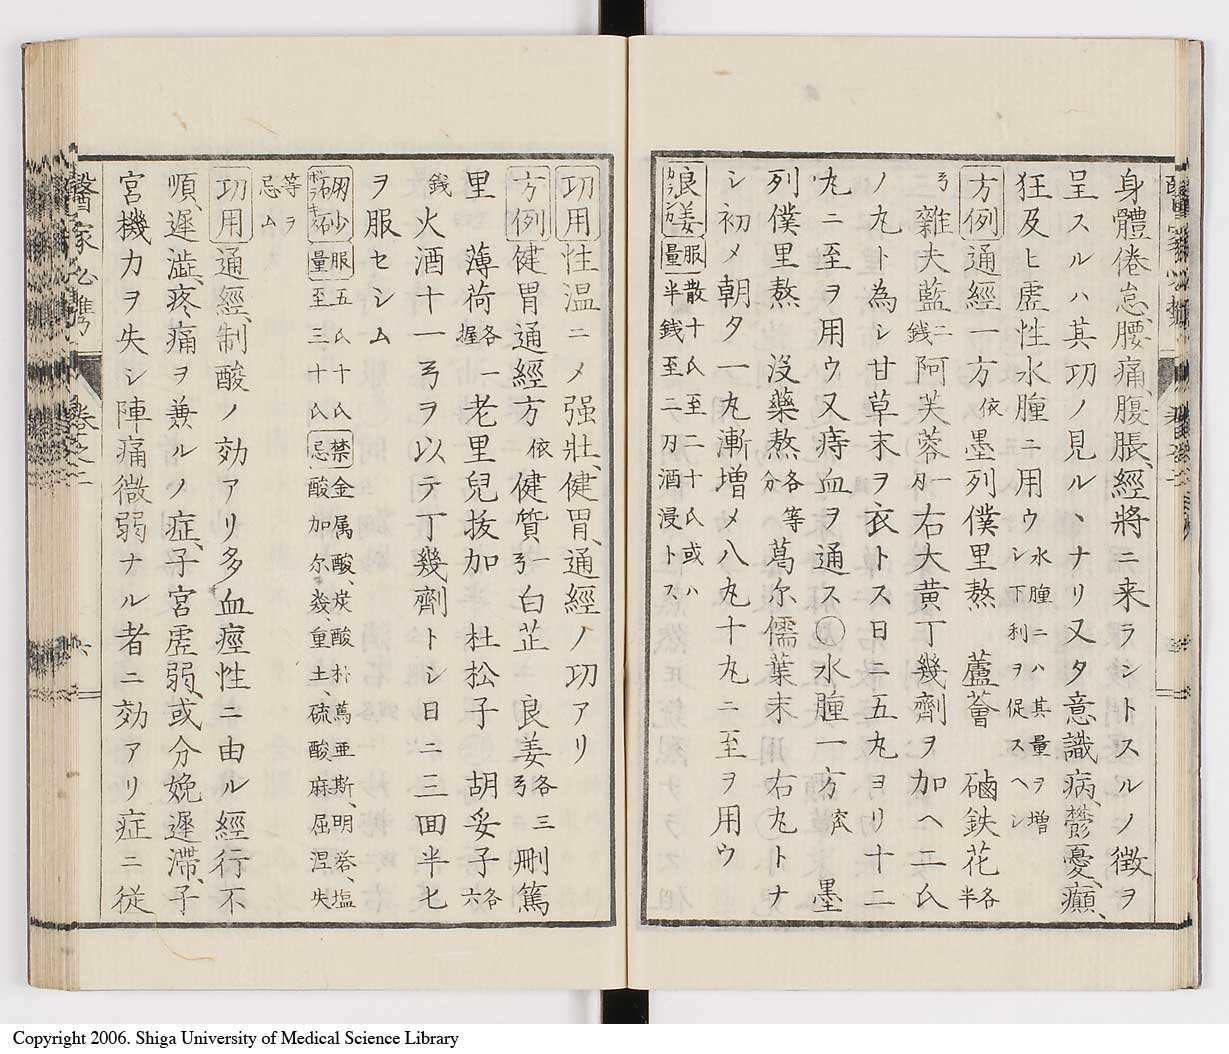 身體倦怠、腰痛、腹脹、經將ニ来ラントスルノ徴ヲ
呈スルハ其功ノ見ルヽナリ又タ意識病、鬱憂、癲、
狂及ヒ虚性水腫ニ用ウ水腫ニハ其量ヲ増シ下利ヲ促スヘシ
方例通經一方依墨列僕里熬 蘆薈 磠鉄花各半
弓雜夫藍二銭阿芙蓉一刄右大黄丁幾劑ヲ加ヘ二氏
ノ丸ト為シ甘草末ヲ衣トス日ニ五丸ヨリ十二
丸ニ至ヲ用ウ又痔血ヲ通ス〇水腫一方 墨
列僕里熬 没藥熬各等分 葛尓儒葉末 右丸トナ
シ初メ朝夕一丸漸増メ八丸十丸ニ至ヲ用ウ
良姜 服量散十氏至二十氏或ハ半銭至二刄酒浸トス
功用性温ニメ强壯、健胃、通經ノ功アリ
方例健胃通經方依健質一弓白芷 良姜各三弓刪篤
里 薄荷各一握老里兒抜加 杜松子 胡妥子各六
銭火酒十一弓ヲ以テ丁幾劑トシ日ニ三回半匕
ヲ服セシム
硼砂 服量五氏十氏至三十氏 禁忌金属酸、炭酸朴蔦亜斯、明礬、塩酸加尓叕、重土、硫酸麻屈涅失
等ヲ忌ム
功用通經、制酸ノ効アリ多血痙性ニ由ル經行不
順、遲澁、疼痛ヲ兼ルノ症、子宮虚弱、或分娩遲滯、子
宮機力ヲ失シ陣痛微弱ナル者ニ効アリ症ニ従
醫家必携 卷之二
Copyright 2006. Shiga University of Medical Science Library